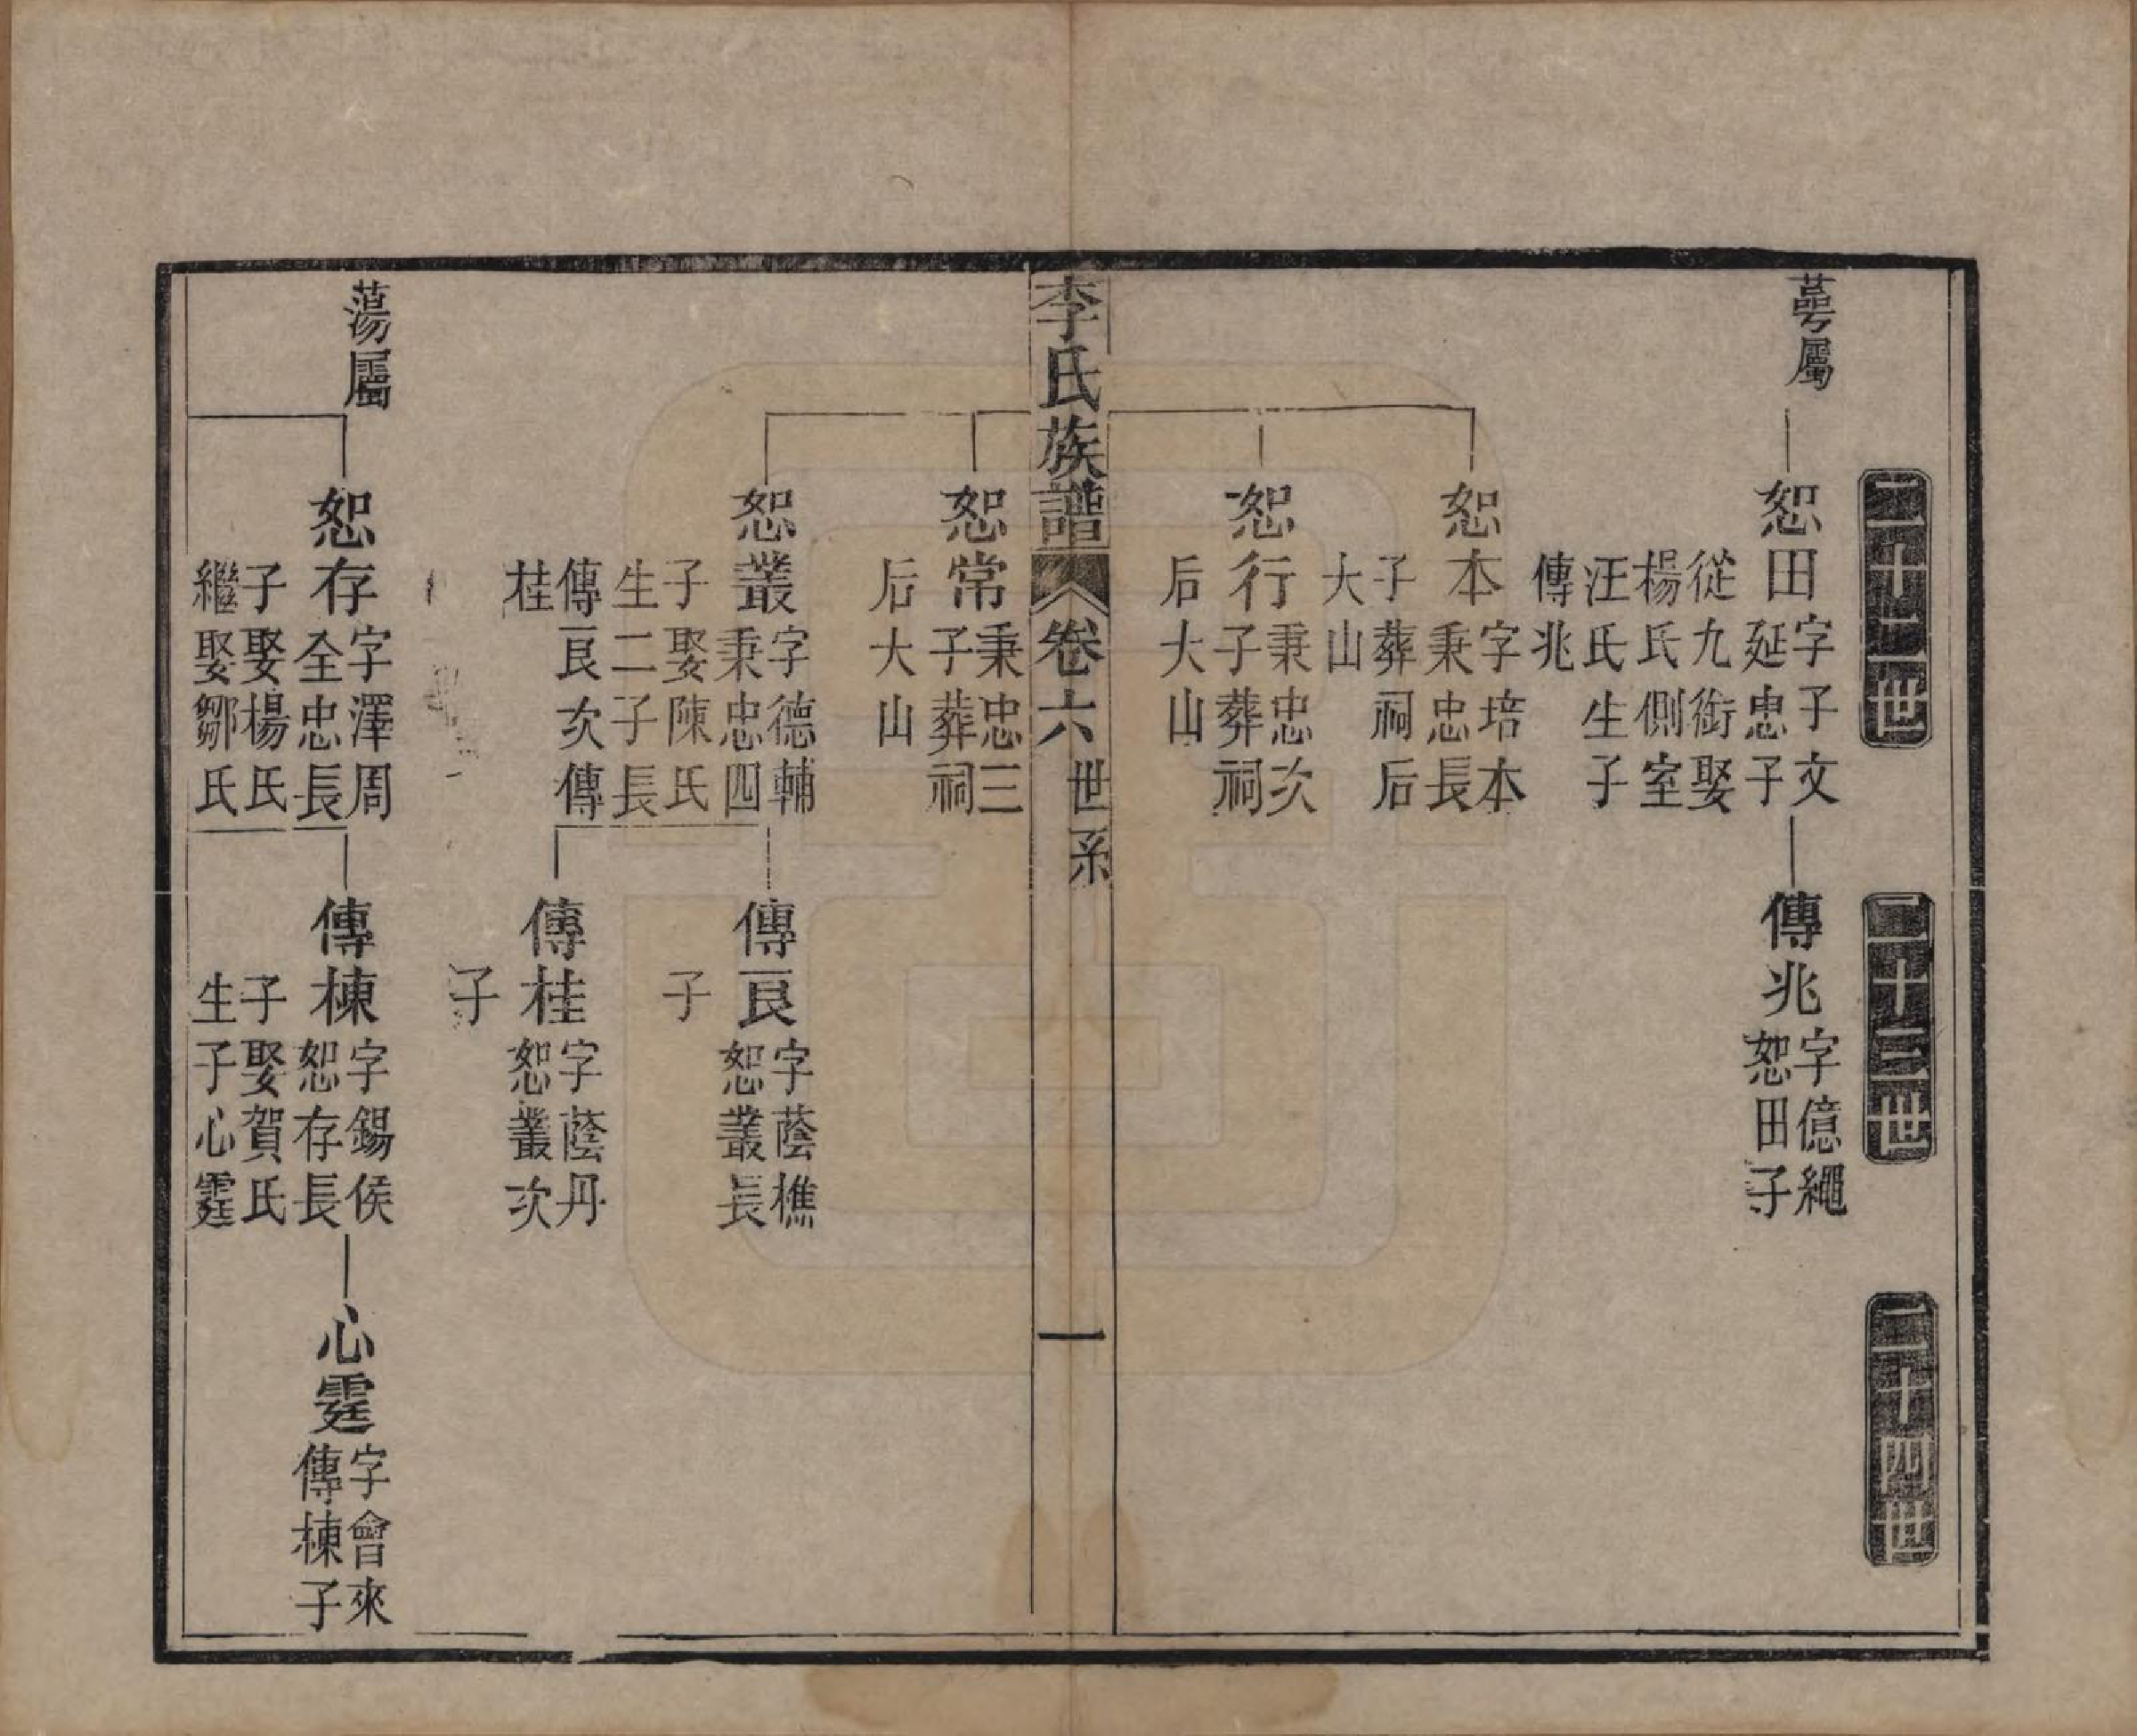 二十二世
二十三世
二十四世
蕚屬
恕田
字子文
延忠子
從九銜娶
楊氏側室
汪氏生子
傳兆
傳兆
字億繩
恕田子
恕本
字培本
秉忠長
子葬祠后
大山
恕行
秉忠次
子葬祠
后大山
李氏族譜
卷六
世系
一
恕常
秉忠三
子葬祠
后大山
恕叢
字德輔
秉忠四
子娶陳氏
生二子長
傳艮次傳
桂
傳艮
字蔭樵
恕叢長
子
傳桂
字蔭丹
恕叢次
子
蕩屬
恕存
字澤周
全忠長
子娶楊氏
繼娶鄒氏
傳棟
字錫侯
恕存長
子娶賀氏
生子心霆
心霆
字會來
傳棟子